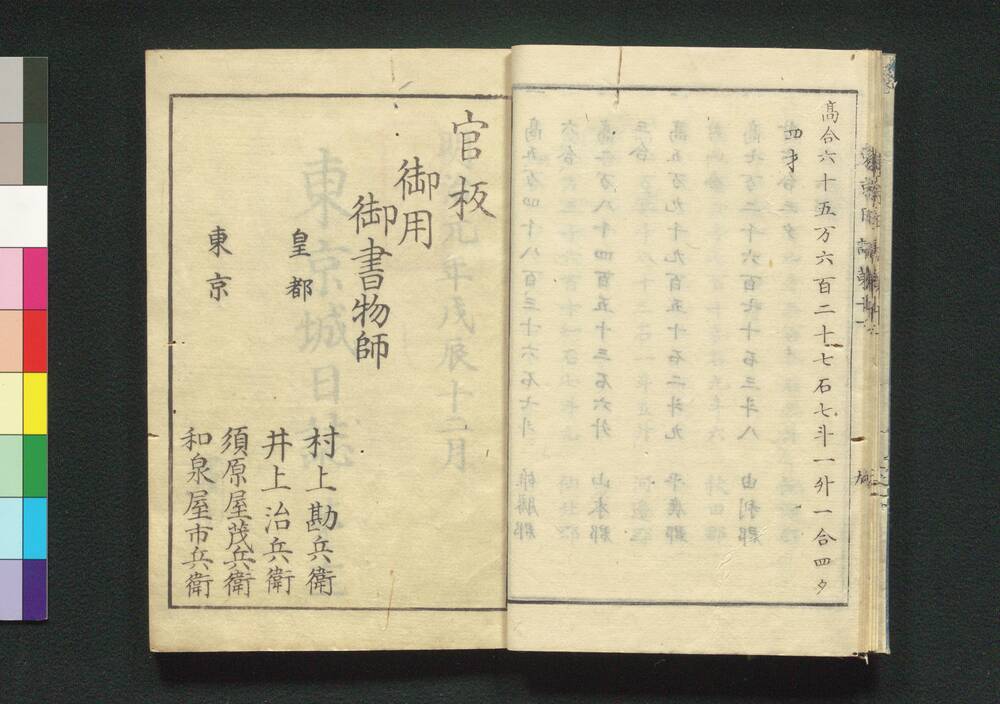 高合六十五万六百二十七石七斗一升一合四夕
四才
官板
御用
御書物師
皇都
村上勘兵衛
井上治兵衛
東京
須原屋茂兵衛
和泉屋市兵衛